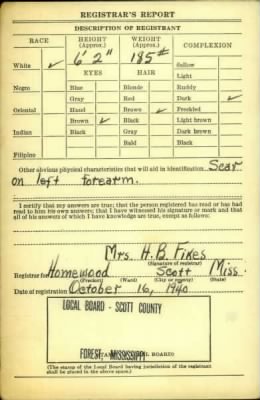 REGISTRAR'S REPORT
DESCRIPTION OF REGISTRANT
RACE HEIGHT (Approx.) WEIGHT (Approx.) COMPLEXION
6' 2" 185#
White ✓ EYES HAIR Sallow
Light
Negro Blue Blonde Ruddy
Gray Red Dark ✓
Oriental Hazel Brown ✓ Freckled
Brown ✓ Black Light brown
Indian Black Gray Dark brown
Bald Black
Filipino
Other obvious physical characteristics that will aid in identification Scar
on left forearm.
I certify that my answers are true; that the person registered has read or has had
read to him his own answers; that I have witnessed his signature or mark and that
all of his answers of which I have knowledge are true, except as follows:
Mrs. H. B. Fikes
(Signature of registrar)
Registrar for Homewood Scott Miss.
(Precinct) (Ward) (City or county) (State)
Date of registration October 16, 1940
LOCAL BOARD - SCOTT COUNTY
FOREST, MISSISSIPPI
(The stamp of the Local Board having jurisdiction of the registrant
shall be placed in the above space.)